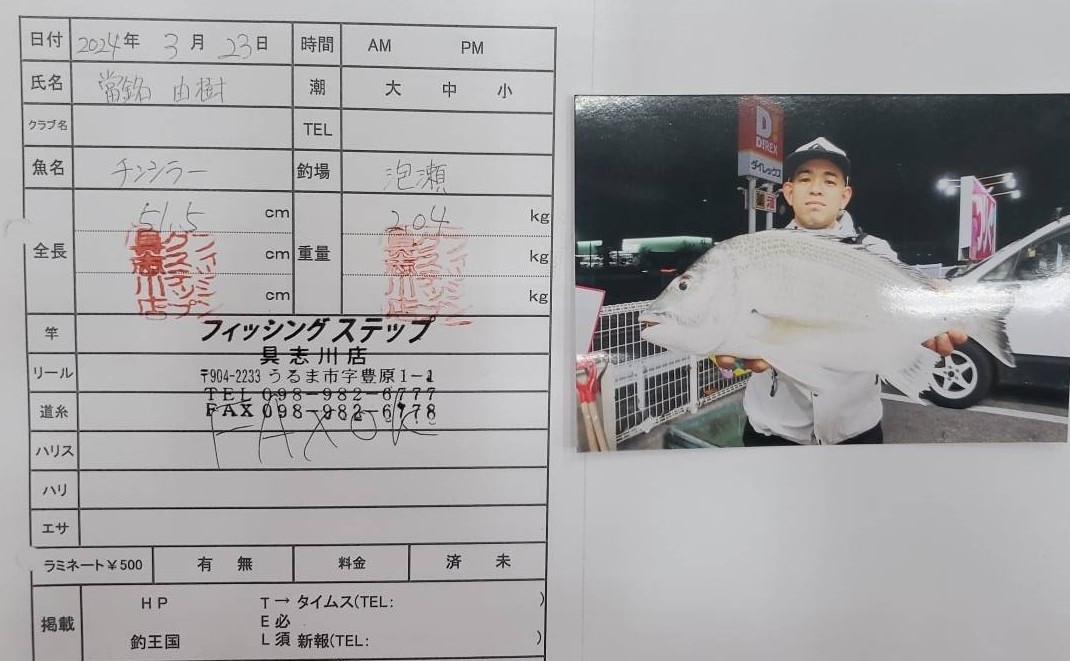 日付 2024年 3月 23日 時間 AM PM
氏名 當銘 由樹 潮 大 中 小
クラブ名 TEL
魚名 チンシラー 釣場 泡瀬
全長 51.5 cm 重量 2.04 kg
cm kg
cm kg
竿
リール
道糸
ハリス
ハリ
エサ
フィッシングステップ
具志川店
〒904-2233 うるま市字豊原1-1
TEL 098-982-6777
FAX 098-982-6778
FAX OK
ラミネート¥500 有 無 料金 済 未
掲載 HP T→タイムス(TEL: )
E必
釣王国 L須 新報(TEL: )
フィッシングステップ
具志川店
フィッシングステップ
具志川店
D
DiREX
ダイレックス